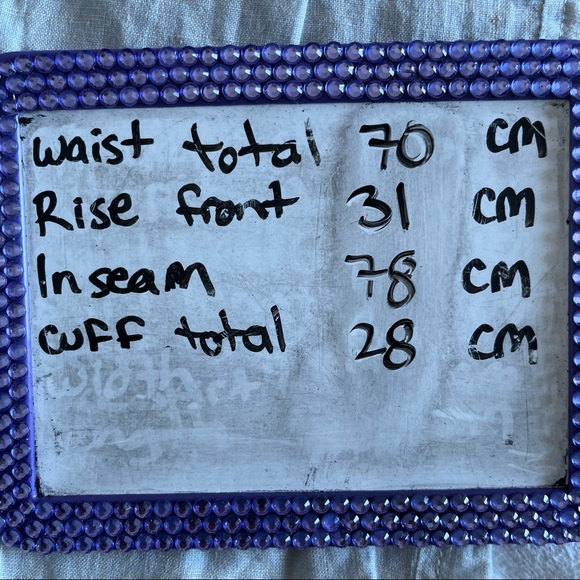 Waist total 70 cm
Rise front 31 cm
Inseam 78 cm
cuff total 28 cm
width